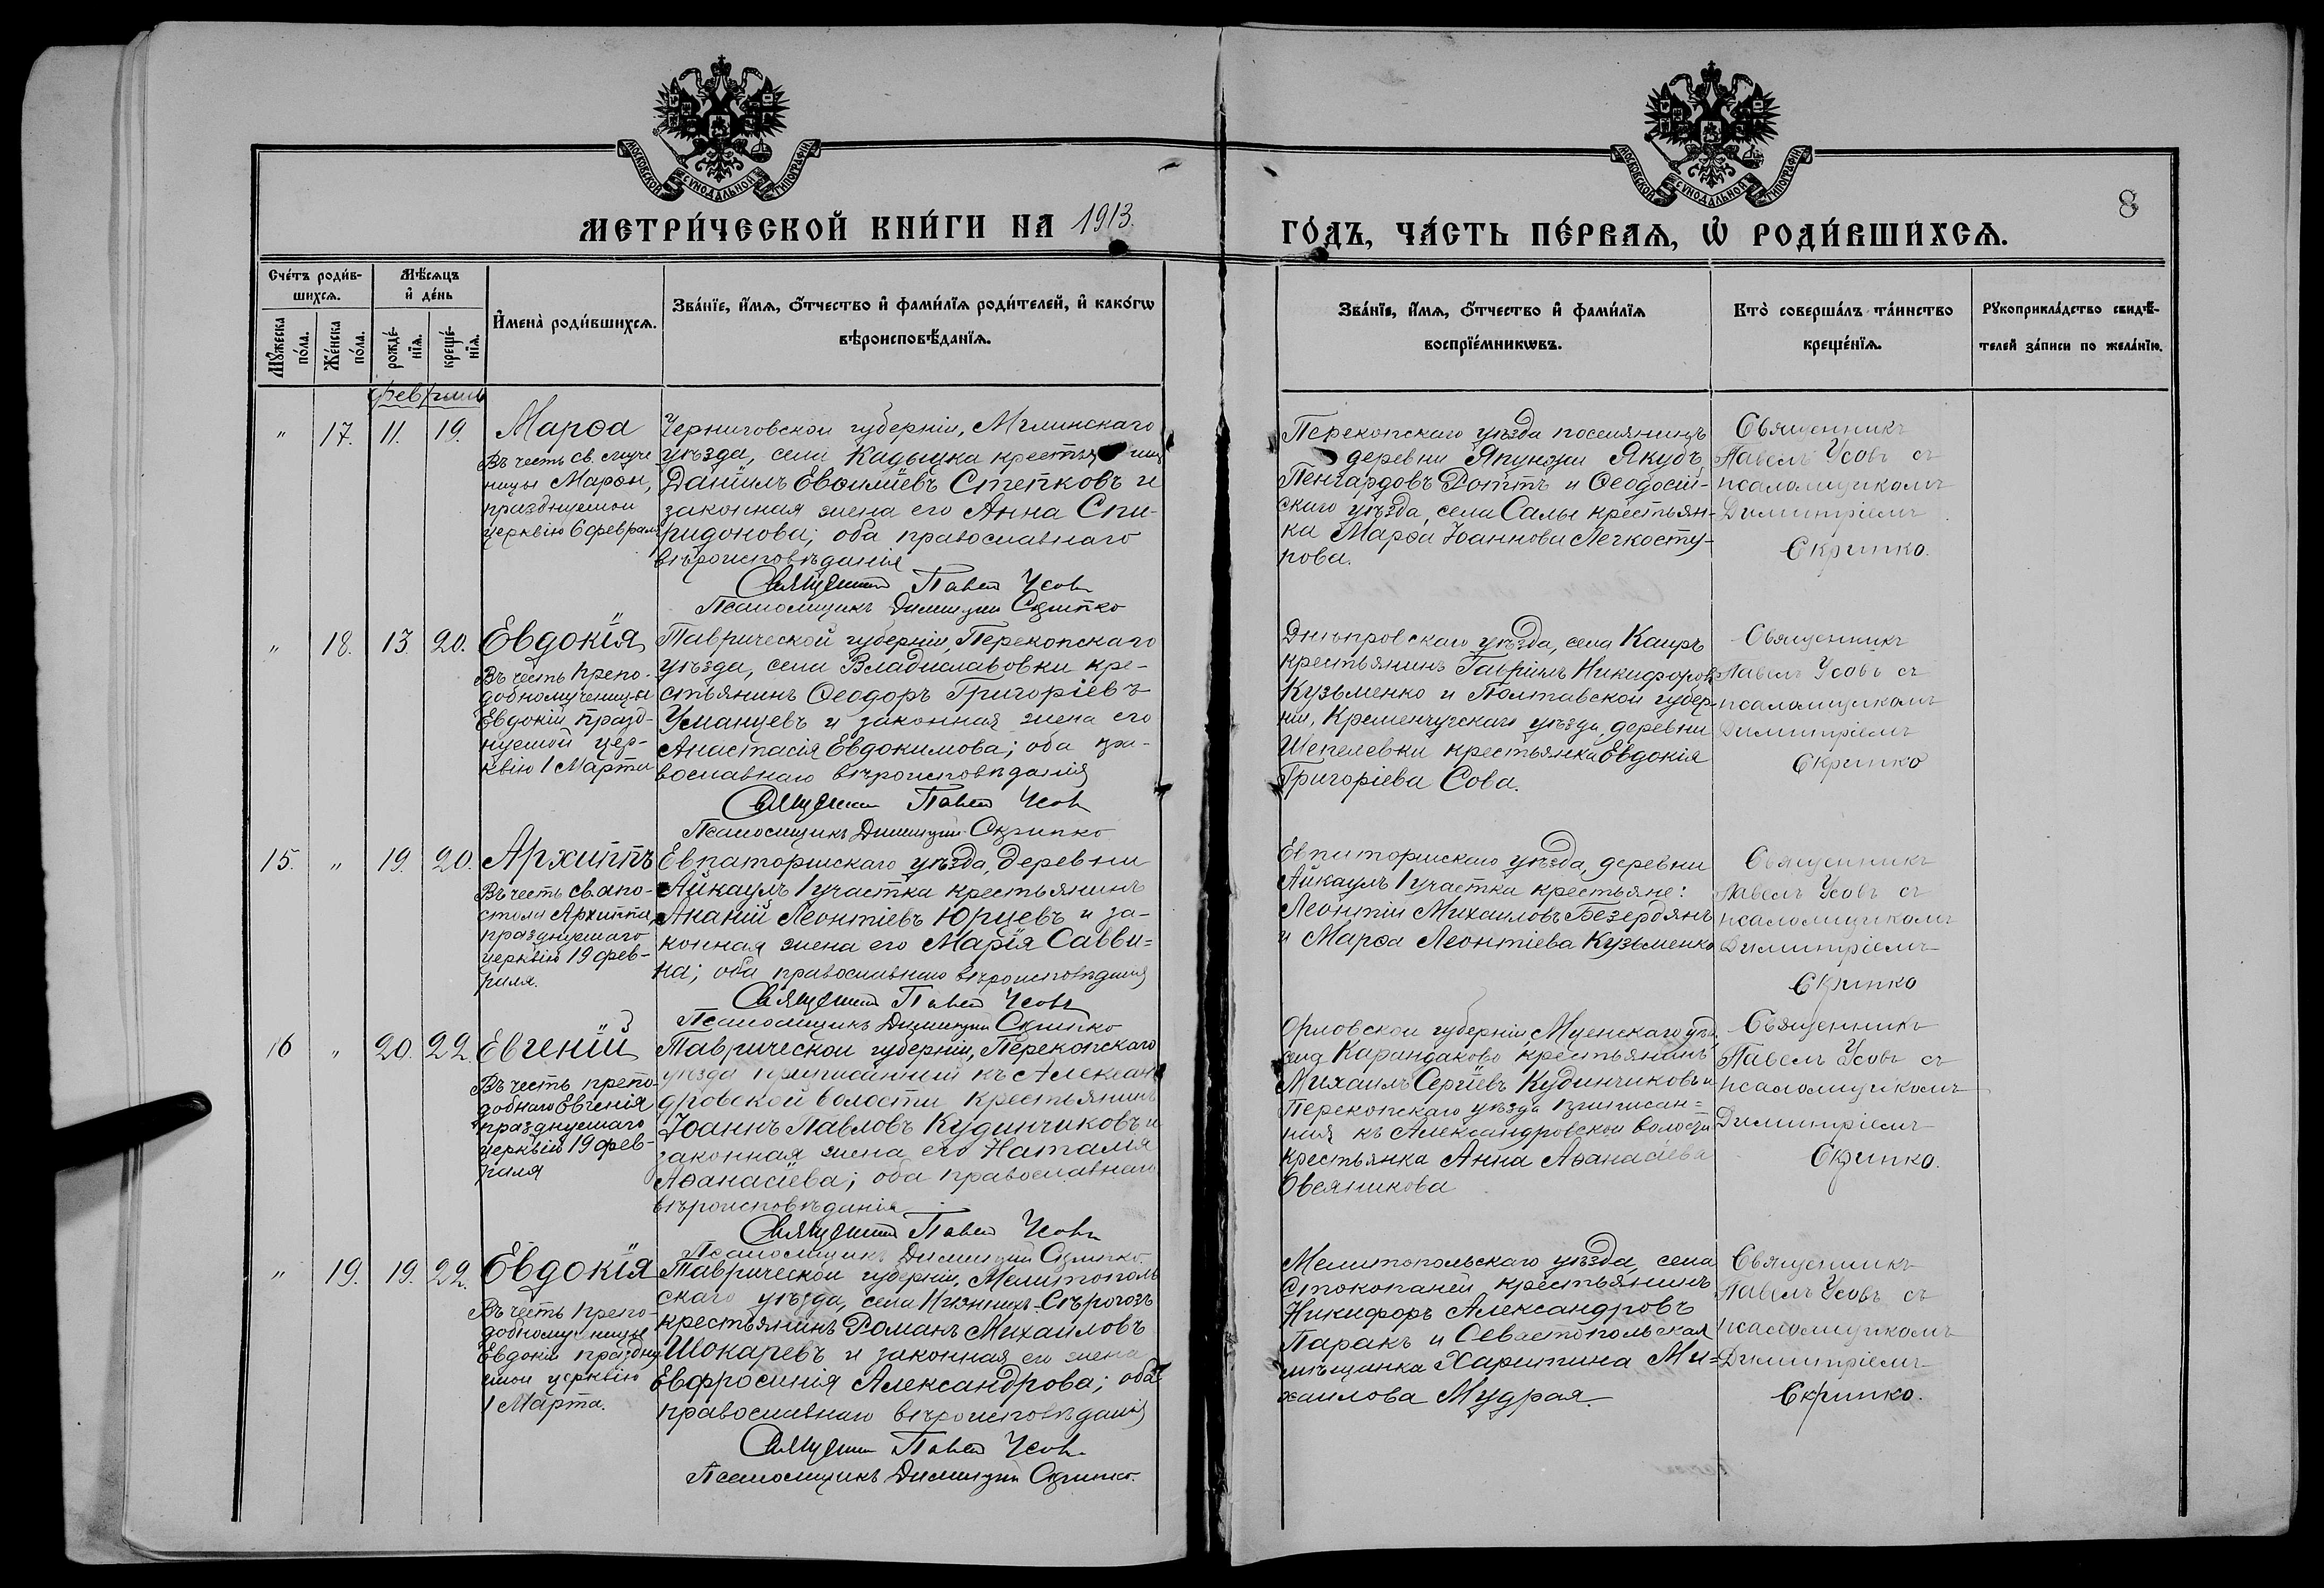 МОСКОВСКОЙ СѴНОДАЛЬНОЙ ТИПОГРАФІИ
МОСКОВСКОЙ СѴНОДАЛЬНОЙ ТИПОГРАФІИ
8
МЕТРИ́ЧЕСКОЙ КНИ́ГИ НА 1913.
ГО́ДЪ, ЧА́СТЬ ПЕ́РВАѦ, Ѡ҆ РОДИ́ВШИХСѦ.
Сче́тъ роди́в-
шихсѧ.
Мꙋ́жеска
по́ла.
Же́нска
по́ла.
Мѣ́сѧцъ
и҆ де́нь
рожде́-
нїѧ.
креще́-
нїѧ.
И҆мена̀ роди́вшихсѧ.
Зва́нїе, и҆́мѧ, ѻ҆́тчество и҆ фами́лїѧ роди́телей, и҆ како́гѡ
вѣроисповѣ́данїѧ.
Зва́нїе, и҆́мѧ, ѻ҆́тчество и҆ фами́лїѧ
воспрїе́мникѡвъ.
Кто̀ соверша́лъ та́инство
креще́нїѧ.
Рꙋкоприкла́дство свидѣ́-
телей за́писи по жела́нїю.
Февраль
" 17. 11. 19.
Марѳа
Въ честь св. муче
ницы Марѳы,
празднуемой
церквію 6 февраля
Черниговской губерніи, Мглинскаго
уѣзда, села Кадыцка крестьянинъ
Даніилъ Евѳиміевъ Степковъ и
законная жена его Анна Спи-
ридонова; оба православнаго
вѣроисповѣданія
Священникъ Павелъ Усовъ
Псаломщикъ Димитрій Скрипко
Перекопскаго уѣзда поселянинъ
деревни Япунджи Якубъ
Пенгардовъ Роттъ и Ѳеодосій-
скаго уѣзда, села Салы крестьян-
ка Марѳа Іоаннова Легкосту-
пова.
Священникъ
Павелъ Усовъ съ
псаломщикомъ
Димитріемъ
Скрипко.
" 18. 13. 20.
Евдокія
Въ честь препо-
добномученицы
Евдокіи празд-
нуемой цер-
квію 1 Марта
Таврической губерніи, Перекопскаго
уѣзда, села Владиславовки кре-
стьянинъ Ѳеодоръ Григоріевъ
Уманцевъ и законная жена его
Анастасія Евдокимова; оба пра-
вославнаго вѣроисповѣданія
Священникъ Павелъ Усовъ
Псаломщикъ Димитрій Скрипко
Днѣпровскаго уѣзда, села Каиръ
крестьянинъ Гавріилъ Никифоровъ
Кузьменко и Полтавской губер-
ніи, Кременчугскаго уѣзда, деревни
Шепелевки крестьянка Евдокія
Григоріева Сова.
Священникъ
Павелъ Усовъ съ
псаломщикомъ
Димитріемъ
Скрипко
15. " 19. 20.
Архиппъ
Въ честь св. апо-
стола Архиппа,
празднуемаго
церквію 19 фев-
раля.
Евпаторійскаго уѣзда, деревни
Айкаулъ 1 участка крестьянинъ
Ананій Леонтіевъ Юрцевъ и за-
конная жена его Марія Савви-
на; оба православнаго вѣроисповѣданія
Священникъ Павелъ Усовъ
Псаломщикъ Димитрій Скрипко
Евпаторійскаго уѣзда, деревни
Айкаулъ 1 участка крестьяне:
Леонтій Михаиловъ Безердянъ
и Марѳа Леонтіева Кузьменко
Священникъ
Павелъ Усовъ съ
псаломщикомъ
Димитріемъ
Скрипко
16 " 20. 22.
Евгеній
Въ честь препо-
добнаго Евгенія
празднуемаго
церквію 19 фев-
раля
Таврической губерніи, Перекопскаго
уѣзда приписанный къ Алексан-
дровской волости крестьянинъ
Іоаннъ Павловъ Кудинчиковъ и
законная жена его Наталія
Аѳанасіева; оба православнаго
вѣроисповѣданія
Священникъ Павелъ Усовъ
Псаломщикъ Димитрій Скрипко
Орловской губерніи, Мценскаго уѣз.
села Карандаково крестьянинъ
Михаилъ Сергіевъ Кудинчиковъ и
Перекопскаго уѣзда приписан-
ная къ Александровской волости
крестьянка Анна Аѳанасіева
Овсяникова
Священникъ
Павелъ Усовъ съ
псаломщикомъ
Димитріемъ
Скрипко.
" 19. 19. 22.
Евдокія
Въ честь препо-
добномученицы
Евдокіи праздну
емой церквію
1 Марта.
Таврической губерніи, Мелитополь
скаго уѣзда, села Нижнихъ-Сѣрогозъ
крестьянинъ Романъ Михаиловъ
Шокаревъ и законная его жена
Евфросинія Александрова; оба
православнаго вѣроисповѣданія
Священникъ Павелъ Усовъ
Псаломщикъ Димитрій Скрипко.
Мелитопольскаго уѣзда, села
Стокопаней крестьянинъ
Никифоръ Александровъ
Паракъ и Севастопольская
мѣщанка Харитина Ми-
хаилова Мудрая.
Священникъ
Павелъ Усовъ съ
псаломщикомъ
Димитріемъ
Скрипко.